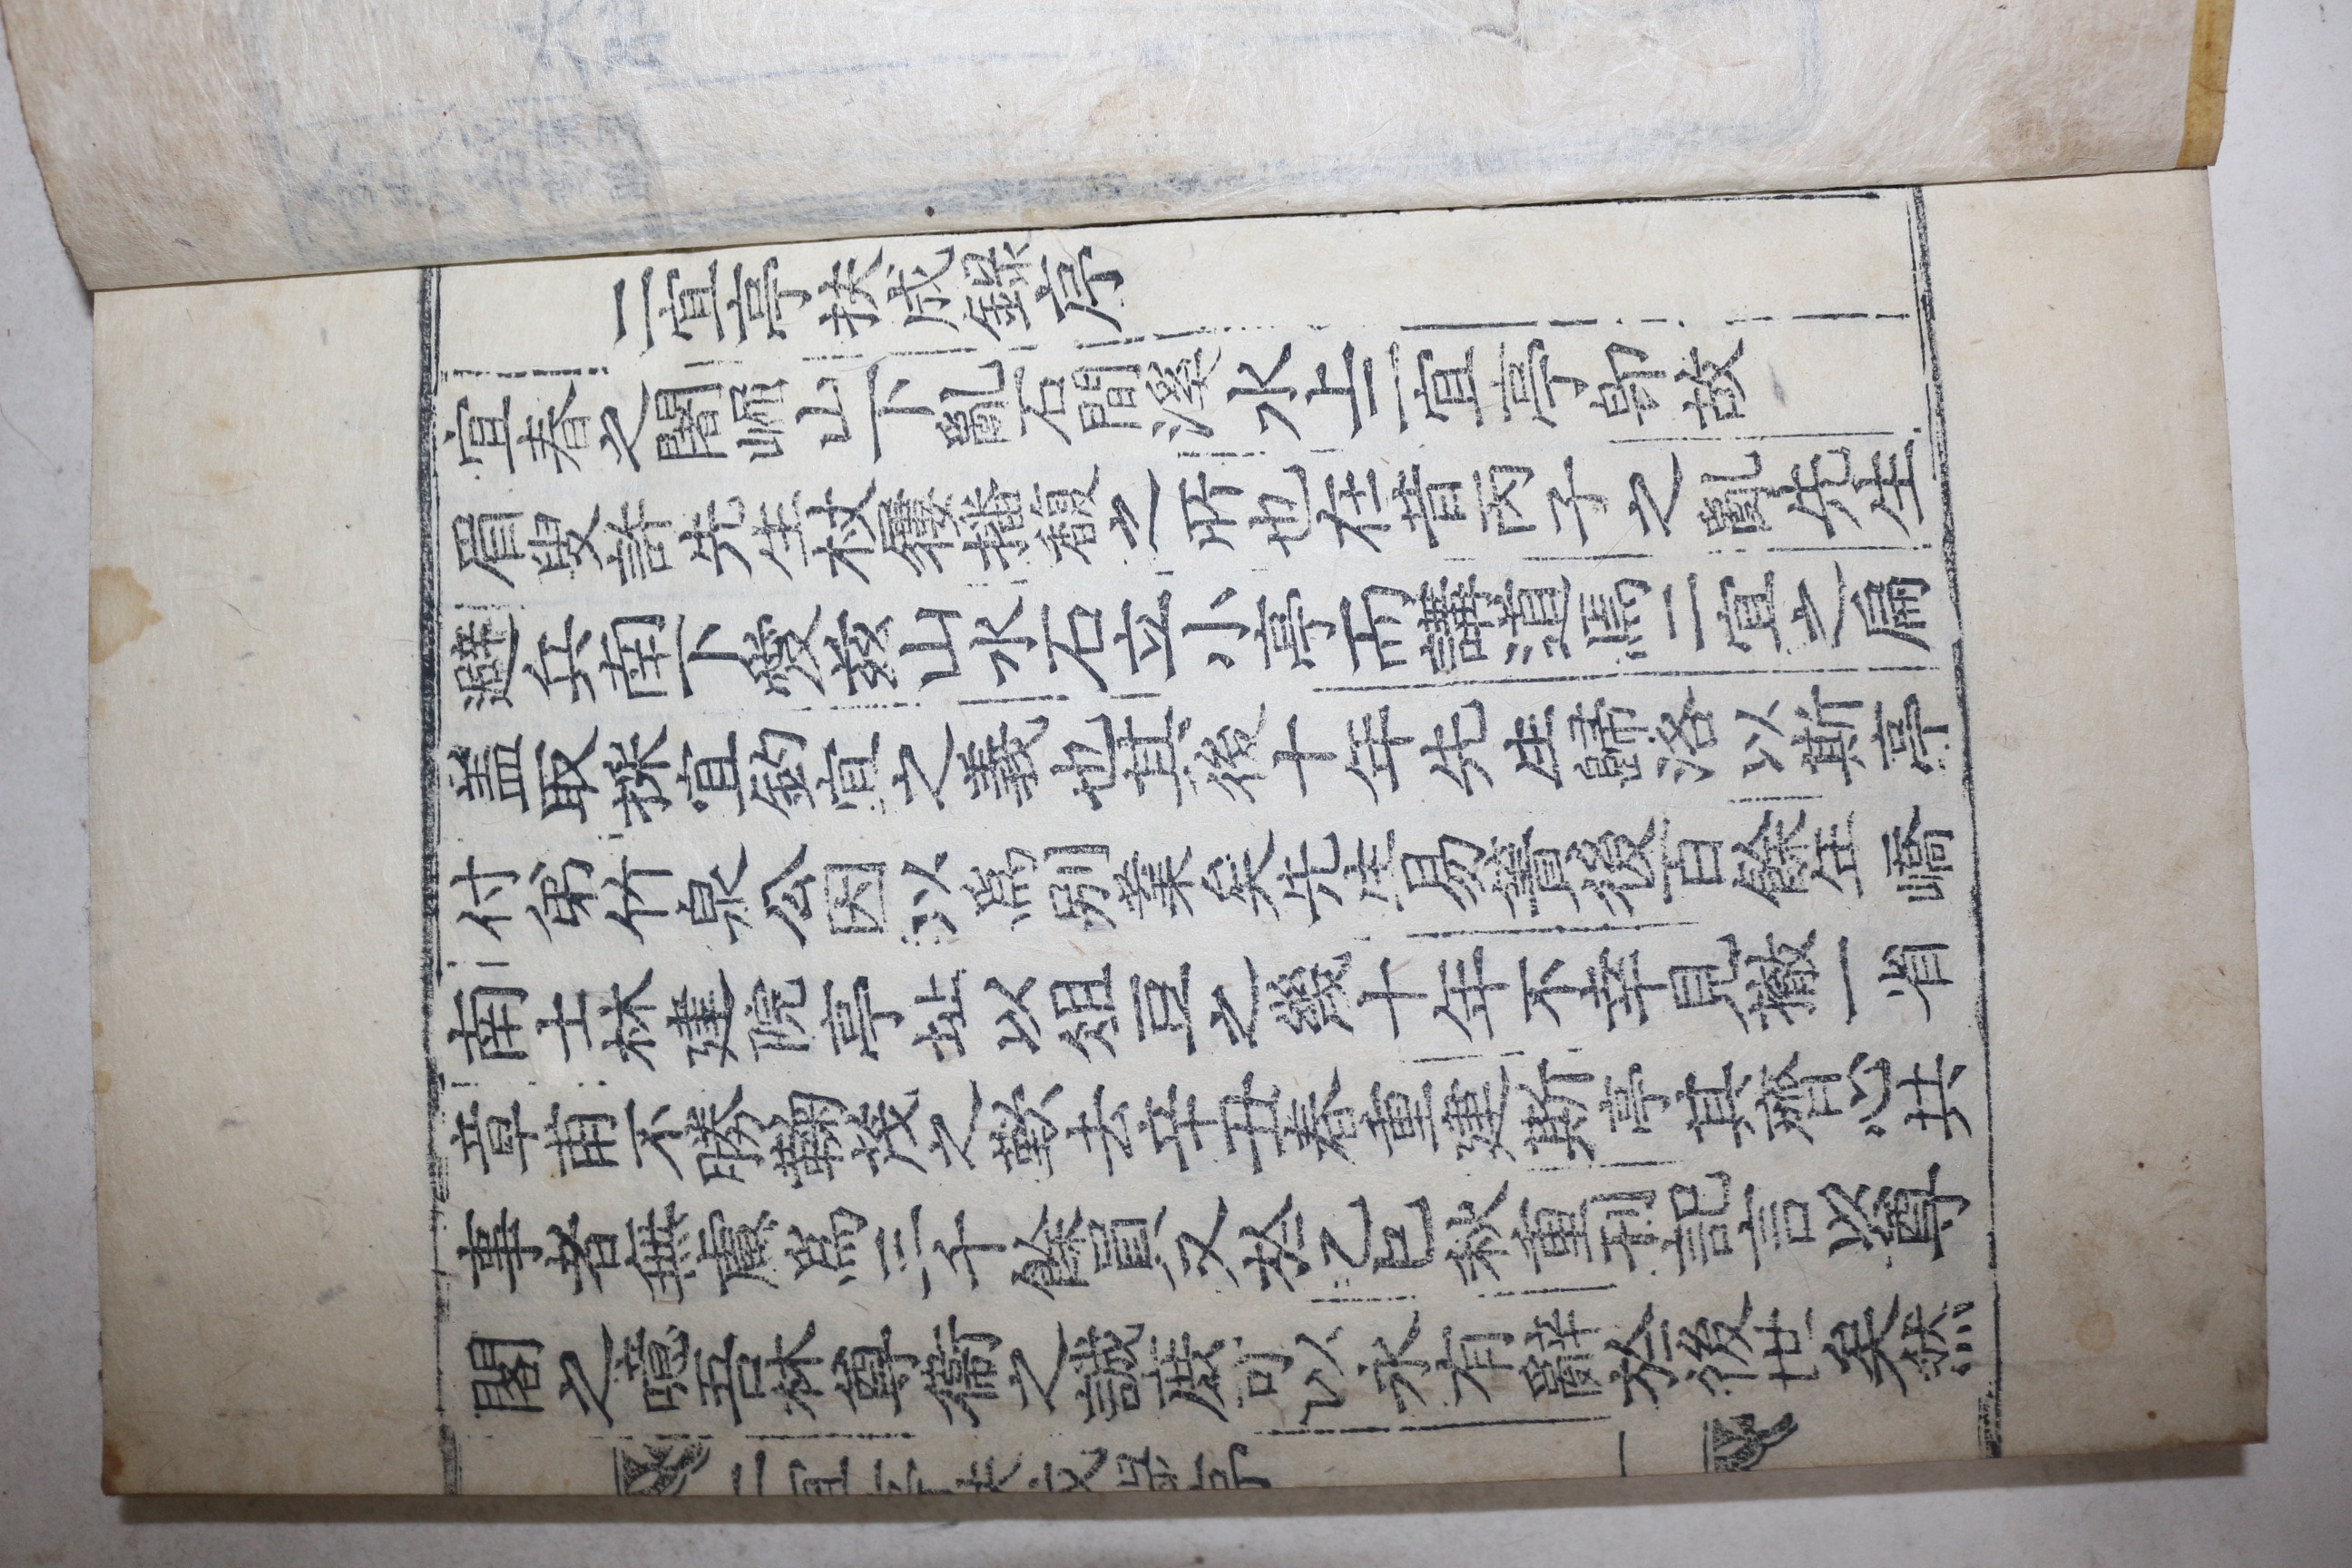 二宜亭扶成錄序
宜春之闍崛山下亂石間溪水上二宜亭卽故
眉叟許先生杖屨播馥之所也在昔丙子之亂先生
避兵南下愛玆山水石立小亭而講道焉二宜之扁
盖取採宜釣宜之義也其後十年先生歸洛以斯亭
付弟竹泉公因以爲別業矣先生易簀後百餘年嶠
南士林建院亭址以俎豆之幾十年不幸見撤一省
章甫不勝鞠茂之歎去辛丑春重建斯亭其齊心共
事者無慮爲三千餘員又於乙巳秋重刊記言以尊
閣之噫吾林尊衛之誠庶可以永有辭於後世矣然
二宜亭扶成錄序 一